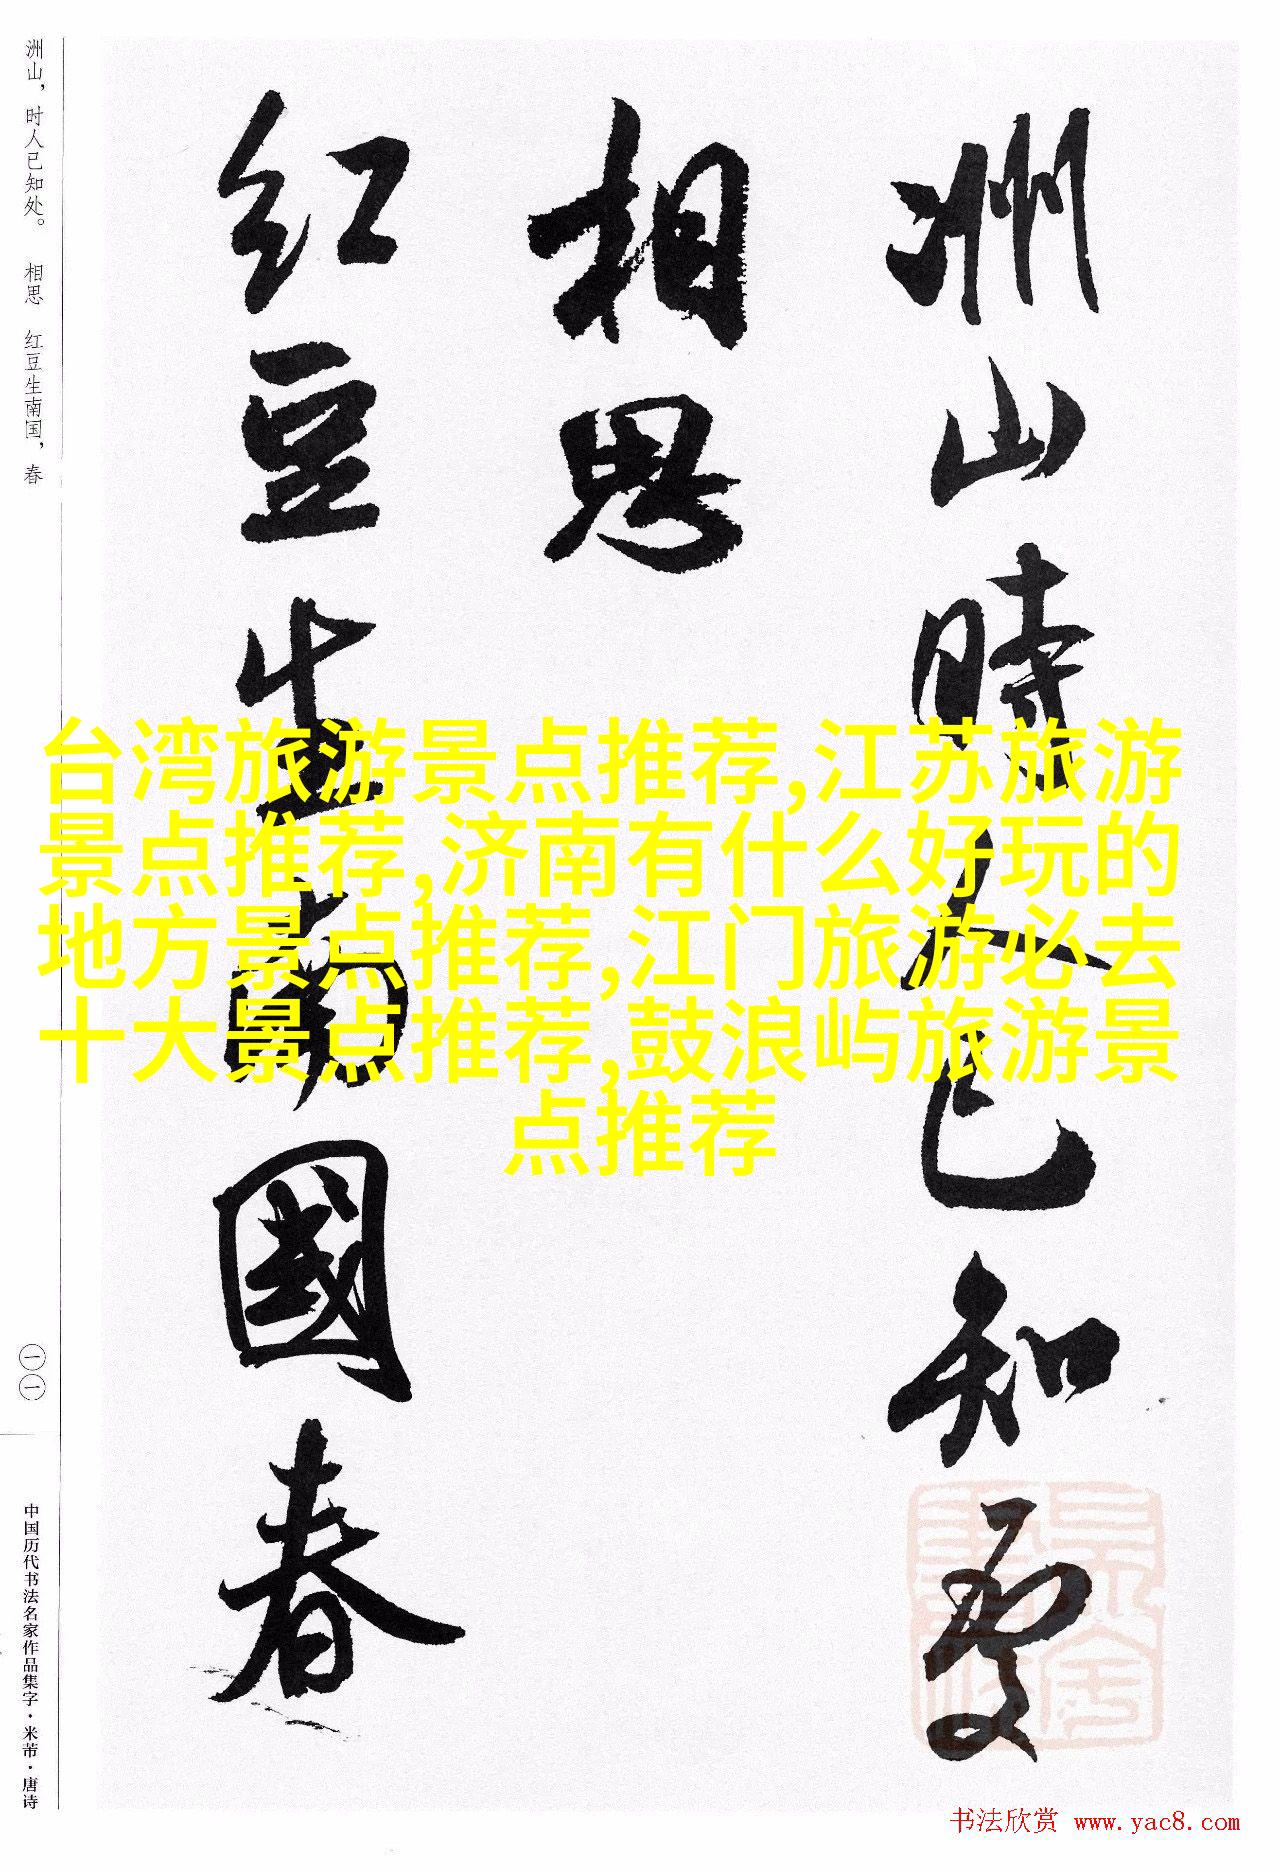 洲山時人已知處
相思
红豆生南國春
洲山，时人已知处。 相思 红豆生南国，春
一一
中国历代书法名家作品集字·米芾·唐诗
台湾旅游景点推荐,江苏旅游
景点推荐,济南有什么好玩的
地方景点推荐,江门旅游必去
十大景点推荐,鼓浪屿旅游景
点推荐
书法欣赏 www.yac8.com